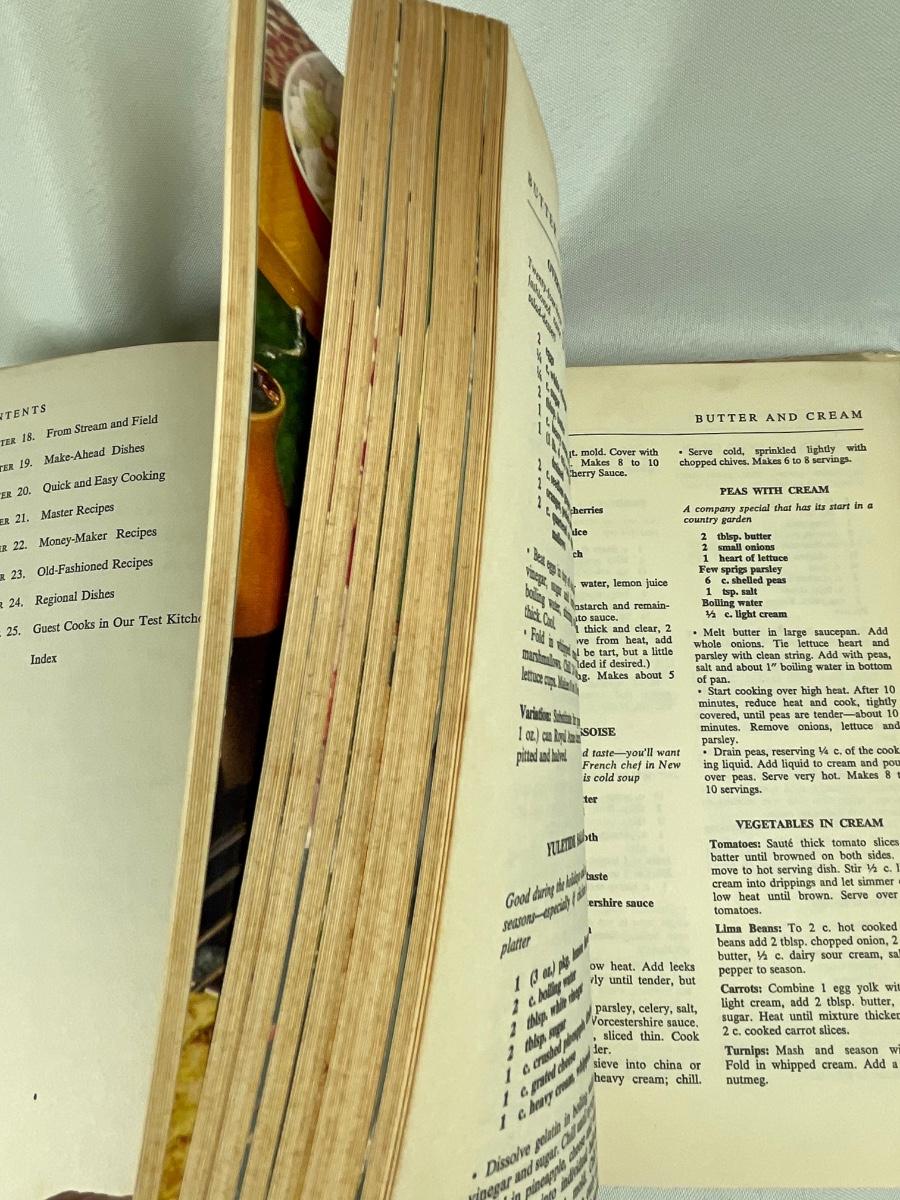 NTENTS
TER 18. From Stream and Field
TER 19. Make-Ahead Dishes
ER 20. Quick and Easy Cooking
R 21. Master Recipes
R 22. Money-Maker Recipes
R 23. Old-Fashioned Recipes
24. Regional Dishes
25. Guest Cooks in Our Test Kitche
Index
BUTTER
2 eggs
• Bean eggs in
vinegar, sugar and
boiling water,
thick. Cool.
• Fold in whipped
marshmallows. Chill
lettuce cups. Makes
Variation: Substitute
1 oz.) can Royal Anne
pitted and halved.
YULETIDE
Good during the holiday
seasons—especially
platter
1 (3 oz.) pkg. lemon
2 c. boiling water
2 tblsp. white vinegar
2 tblsp. sugar
1 c. crushed pineapple
1 c. grated cheese
1 c. heavy cream,
• Dissolve gelatin in boiling
vinegar and sugar. Chill
in pineapple, cheese
into individual
BUTTER AND CREAM
t. mold. Cover with
Makes 8 to 10
Cherry Sauce.
cherries
ice
ch
water, lemon juice
nstarch and remain-
to sauce.
thick and clear, 2
ve from heat, add
l be tart, but a little
ded if desired.)
g. Makes about 5
SSOISE
d taste—you'll want
French chef in New
is cold soup
ter
oth
taste
ershire sauce
ow heat. Add leeks
ly until tender, but
parsley, celery, salt,
Vorcestershire sauce.
, sliced thin. Cook
der.
sieve into china or
heavy cream; chill.
• Serve cold, sprinkled lightly with
chopped chives. Makes 6 to 8 servings.
PEAS WITH CREAM
A company special that has its start in a
country garden
2 tblsp. butter
2 small onions
1 heart of lettuce
Few sprigs parsley
6 c. shelled peas
1 tsp. salt
Boiling water
½ c. light cream
• Melt butter in large saucepan. Add
whole onions. Tie lettuce heart and
parsley with clean string. Add with peas,
salt and about 1" boiling water in bottom
of pan.
• Start cooking over high heat. After 10
minutes, reduce heat and cook, tightly
covered, until peas are tender—about 10
minutes. Remove onions, lettuce and
parsley.
• Drain peas, reserving ¼ c. of the cook
ing liquid. Add liquid to cream and pou
over peas. Serve very hot. Makes 8 t
10 servings.
VEGETABLES IN CREAM
Tomatoes: Sauté thick tomato slices
batter until browned on both sides.
move to hot serving dish. Stir ½ c. l
cream into drippings and let simmer
low heat until brown. Serve over
tomatoes.
Lima Beans: To 2 c. hot cooked
beans add 2 tblsp. chopped onion, 2
butter, ½ c. dairy sour cream, sal
pepper to season.
Carrots: Combine 1 egg yolk wit
light cream, add 2 tblsp. butter,
sugar. Heat until mixture thicken
2 c. cooked carrot slices.
Turnips: Mash and season wi
Fold in whipped cream. Add a
nutmeg.